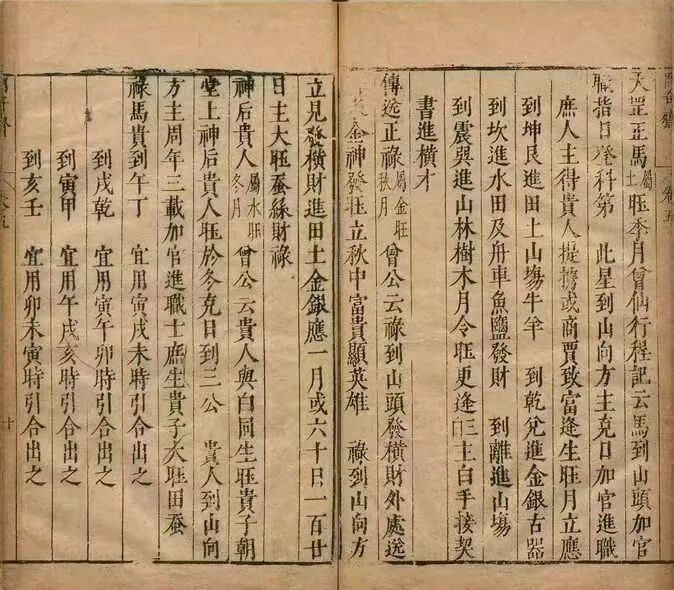 天罡正馬屬土旺季月曾仙行程記云馬到山頭加官
職指日登科第 此星到山向方主克日加官進職
庶人主得貴人提攜或商賈致富逢生旺月立應
到坤艮進田土山塲牛羊 到乾兌進金銀古器
到坎進水田及舟車魚鹽發財 到離進山塲
到震巽進山林樹木月令旺更逢白主白手接契
書進橫才
傳送正祿屬金旺秋月曾公云祿到山頭發橫財外處送
金神發旺立秋中富貴顯英雄 祿到山向方
立見發橫財進田土金銀應一月或六十日一百廿
日主大旺蚕絲財祿
神后貴人屬水旺冬月曾公云貴人與白同生旺貴子朝
堂上神后貴人旺於冬克日到三公 貴人到山向
方主周年三載加官進職士庶生貴子大旺田蚕
祿馬貴到午丁 宜用寅戌未時引合出之
到戌乾 宜用寅午卯時引合出之
到寅甲 宜用午戌亥時引合出之
到亥壬 宜用卯未寅時引合出之
卷五
卷五
十